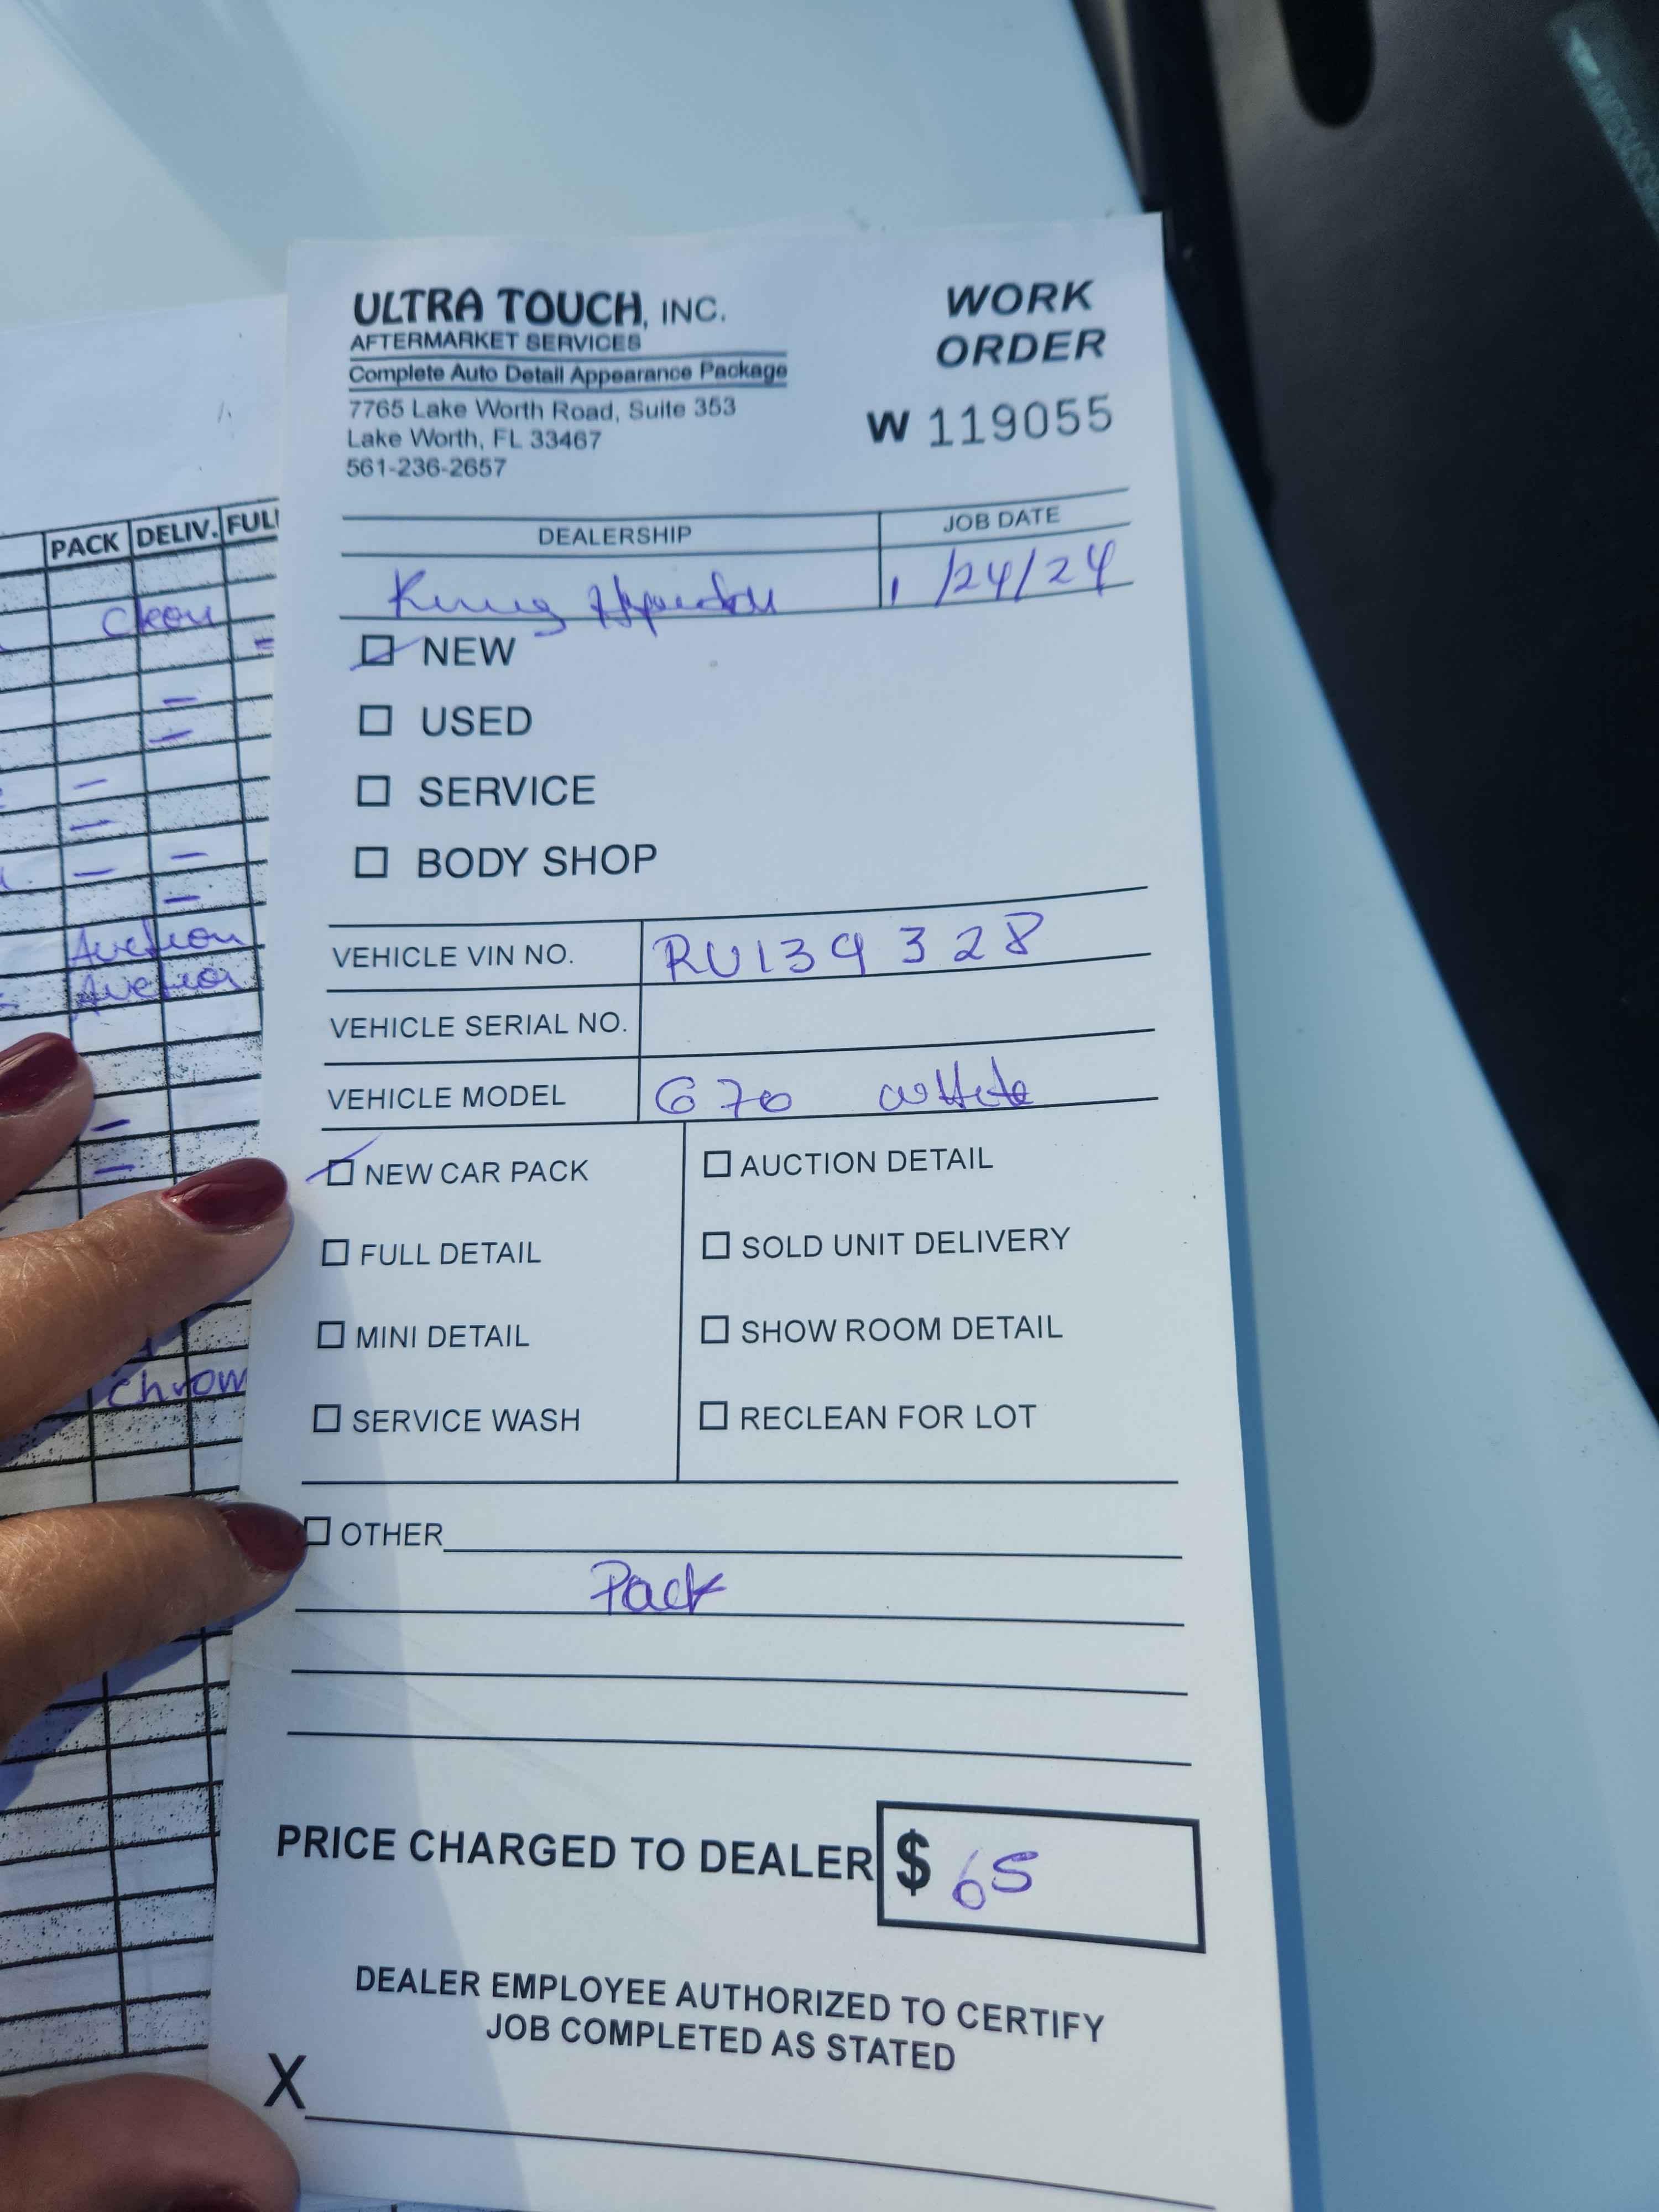 ULTRA TOUCH, INC.
AFTERMARKET SERVICES
Complete Auto Detail Appearance Package
7765 Lake Worth Road, Suite 353
Lake Worth, FL 33467
561-236-2657
WORK
ORDER
W 119055
DEALERSHIP
JOB DATE
1/24/24
NEW
USED
SERVICE
BODY SHOP
VEHICLE VIN NO. RU139328
VEHICLE SERIAL NO.
VEHICLE MODEL G70 white
NEW CAR PACK
FULL DETAIL
MINI DETAIL
SERVICE WASH
AUCTION DETAIL
SOLD UNIT DELIVERY
SHOW ROOM DETAIL
RECLEAN FOR LOT
OTHER
Pack
PRICE CHARGED TO DEALER $ 65
DEALER EMPLOYEE AUTHORIZED TO CERTIFY
JOB COMPLETED AS STATED
X
PACK DELIV. FULL
Clean
Auction
Auction
Chrom